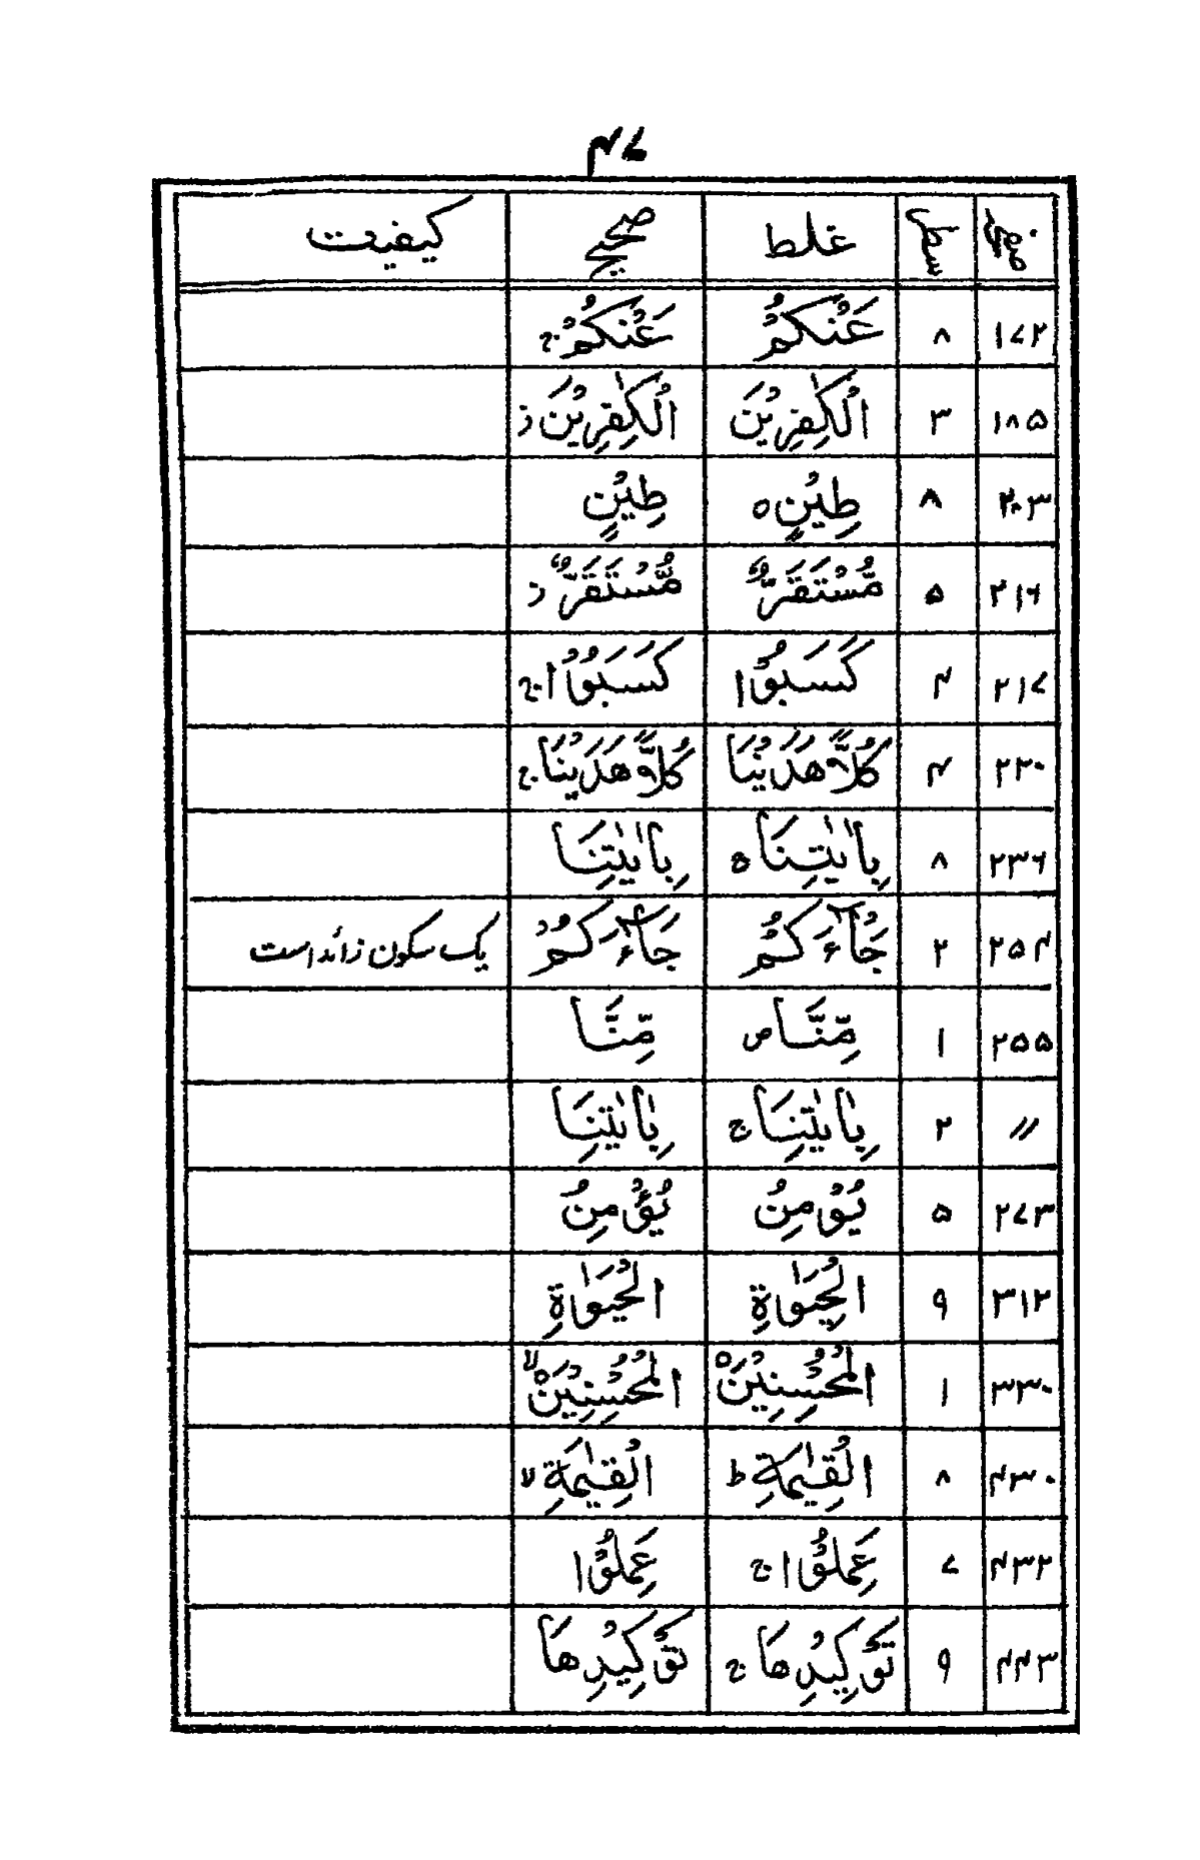 ۴۷
صفحہ سطر غلط صحیح کیفیت
۱۷۲ ۸ عَنْكُمْ عَنْكُمْ ج
۱۸۵ ۳ الْكٰفِرِيْنَ الْكٰفِرِيْنَ ز
۲۰۳ ۸ طِيْنٍ ه طِيْنٍ
۲۱۶ ۵ مُّسْتَقَرٌّ مُّسْتَقَرٌّ ز
۲۱۷ ۴ كَسَبُوْا كَسَبُوْا ج
۲۲۰ ۴ كُلًّا هَدَيْنَا كُلًّا هَدَيْنَا ج
۲۳۶ ۸ بِاٰيٰتِنَا ه بِاٰيٰتِنَا
۲۵۴ ۲ جَآءَكُمْ جَآءَكُمْ یک سکون زائد است
۲۵۵ ۱ مِنَّا ص مِنَّا
〃 ۲ بِاٰيٰتِنَا ج بِاٰيٰتِنَا
۲۷۳ ۵ يُوْمِنُ يُؤْمِنُ
۳۱۲ ۹ الْحِيَوٰةِ الْحَيَوٰةِ
۳۳۰ ۱ الْمُحْسِنِيْنَ ه الْمُحْسِنِيْنَ لا
۴۳۰ ۸ الْقِيٰمَةِ ط الْقِيٰمَةِ لا
۴۳۲ ۷ عَمِلُوْا ج عَمِلُوْا
۴۴۳ ۹ تَوْكِيْدِهَا ج تَوْكِيْدِهَا